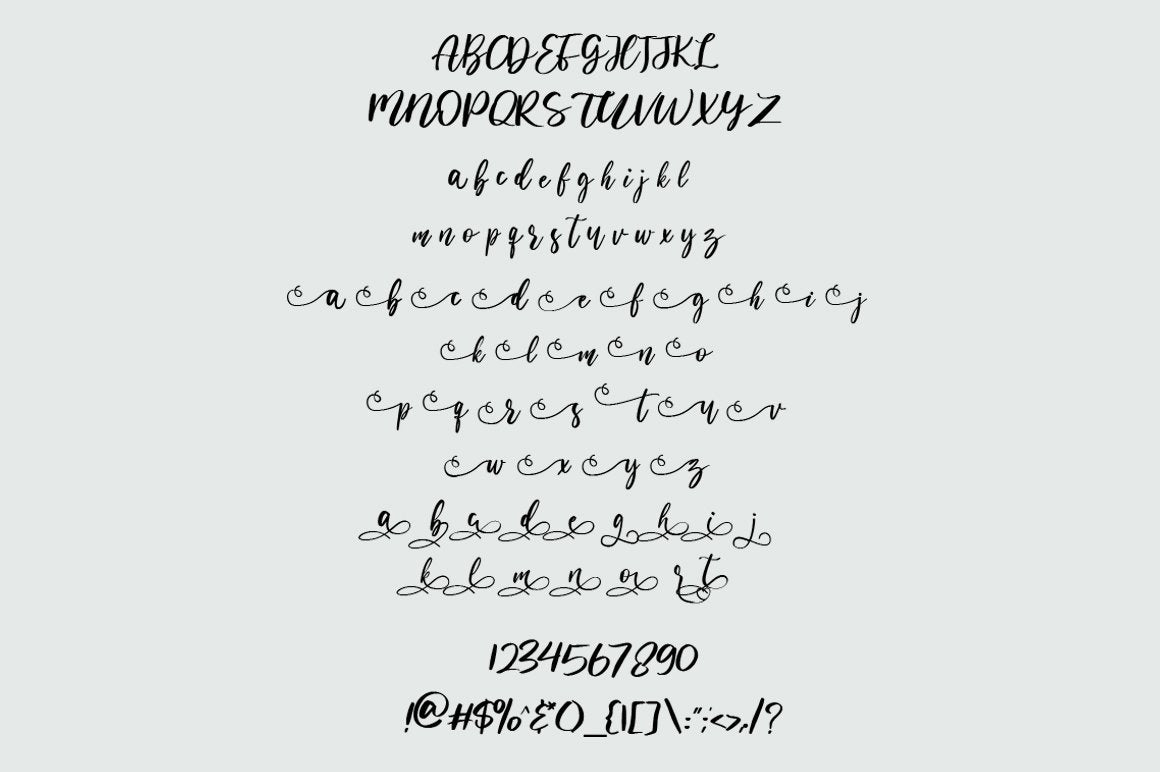 ABCDEFGHIJKL
MNOPQRSTUVWXYZ
a b c d e f g h i j k l
m n o p q r s t u v w x y z
a b c d e f g h i j
k l m n o
p q r s t u v
w x y z
a b c d e g h i j
k l m n o r t
1234567890
!@#$%^&*()_{|[]\:";'<>,./?